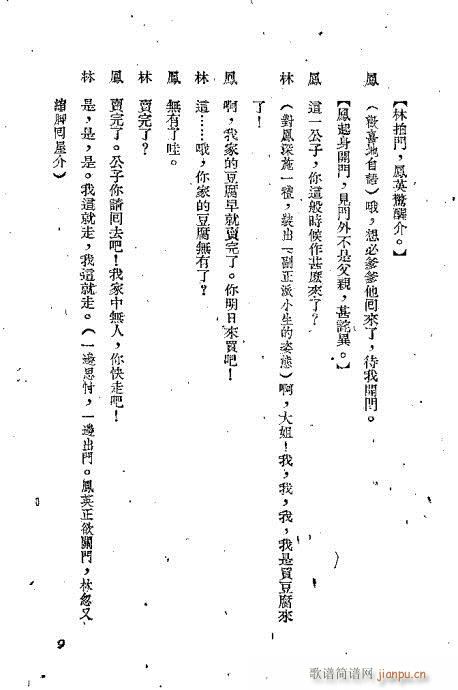 【林拍門，鳳英驚醒介。】
鳳　（歡喜地自語）哦，想必爹爹他回來了，待我開門。
【鳳起身開門，見門外不是父親，甚詫異。】
鳳　這一公子，你這般時候作甚麼來了？
林　（對鳳深施一禮，裝出一副正派小生的姿態）啊，大姐！我，我，我，我是買豆腐來
了！
鳳　啊，我家的豆腐早就賣完了。你明日來買吧！
林　這……哦，你家的豆腐無有了？
鳳　無有了哇。
林　賣完了？
鳳　賣完了。公子你請回去吧！我家中無人，你快走吧！
林　是，是，是。我這就走，我這就走。（一邊思忖，一邊出門。鳳英正欲關門，林忽又
縮脚回屋介）
9
歌谱简谱网
jianpu.cn